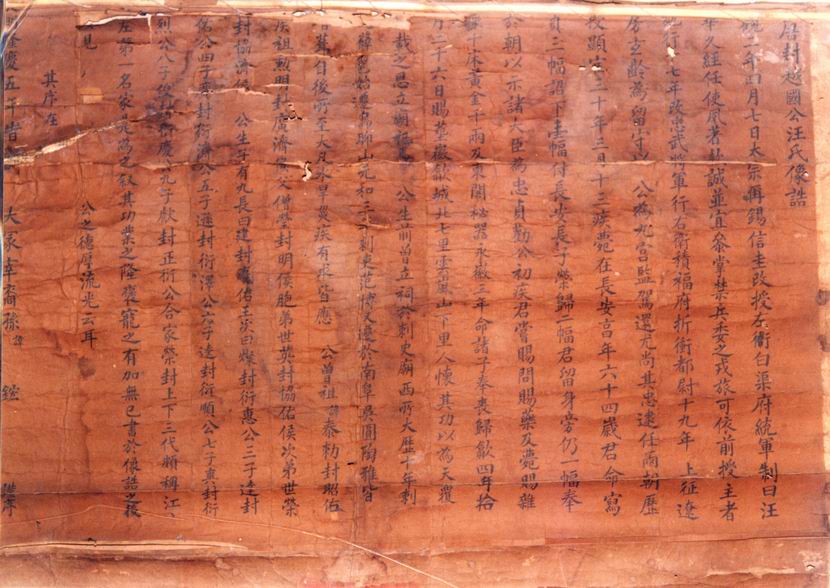 唐封越國公汪氏像誥
觀二年四月七日太宗再錫信圭改授左衛白渠府統軍制曰汪
華久經任使夙著款誠並宜叅掌禁兵委之戎旅可依前授主者
施行十七年改忠武將軍行右衛積福府折衝都尉十九年 上征遼
房玄齡為留守以 公為九宮監駕還尤尚其忠逮任兩朝歷
授顯 二十年三月十三疾薨在長安享年六十四歲君命寫
真三幅詔下圭幅付長安長子榮歸二幅君留身旁仍一幅奉
於朝以示諸大臣為忠貞勸公初疾君嘗賜問賜藥及薨賜雜
綵千床黃金千兩及東園秘器永徽三年命諸子奉喪歸歙四年拾
月二十六日賜塟徽歙城北七里雲嵐山下里人懷其功以為天覆
載之恩立廟 公生前曽立祠於刺史廟西所大歷十年刺
薛邕始遷烏聊山元和三年刺史范傳又遷於南阜吳圓陶雅皆
葺自後所至大凡水旱災疾有求皆應 公曽祖 泰勑封昭佑
侯祖勳明封廣濟侯父僧瑩封明侯胞弟世英封協佑侯次弟世榮
封協濟侯 公生子有九長曰建封 佑王次曰燦封衍惠公三子逵封
佑公四子 封衍濟公五子遜封衍澤公六子逵封衍順公七子爽封衍
烈公八子俊封衍慶公九子獻封正衍公合家榮封上下三代頗稱江
左第一名家 是為之敍其功業之隆褒寵之有加無已書於像誥之後
見 公之德厚流光云耳
其序在
隆慶五年 大 裔孫